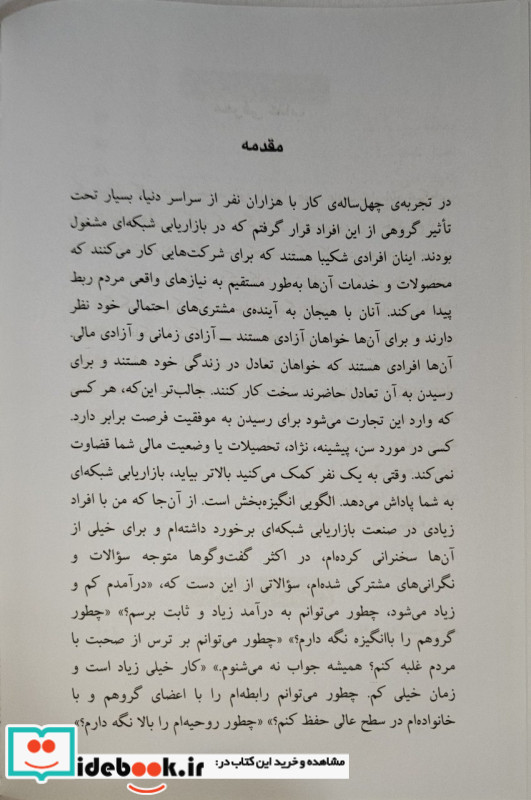 مقدمه
در تجربه‌ی چهل‌ساله‌ی کار با هزاران نفر از سراسر دنیا، بسیار تحت
تأثیر گروهی از این افراد قرار گرفتم که در بازاریابی شبکه‌ای مشغول
بودند. اینان افرادی شکیبا هستند که برای شرکت‌هایی کار می‌کنند که
محصولات و خدمات آن‌ها به‌طور مستقیم به نیازهای واقعی مردم ربط
پیدا می‌کند. آنان با هیجان به آینده‌ی مشتری‌های احتمالی خود نظر
دارند و برای آن‌ها خواهان آزادی هستند ــ آزادی زمانی و آزادی مالی.
آن‌ها افرادی هستند که خواهان تعادل در زندگی خود هستند و برای
رسیدن به آن تعادل حاضرند سخت کار کنند. جالب‌تر این‌که، هر کسی
که وارد این تجارت می‌شود برای رسیدن به موفقیت فرصت برابر دارد.
کسی در مورد سن، پیشینه، نژاد، تحصیلات یا وضعیت مالی شما قضاوت
نمی‌کند. وقتی به یک نفر کمک می‌کنید بالاتر بیاید، بازاریابی شبکه‌ای
به شما پاداش می‌دهد. الگویی انگیزه‌بخش است. از آن‌جا که من با افراد
زیادی در صنعت بازاریابی شبکه‌ای برخورد داشته‌ام و برای خیلی از
آن‌ها سخنرانی کرده‌ام، در اکثر گفت‌وگوها متوجه سؤالات و
نگرانی‌های مشترکی شده‌ام، سؤالاتی از این دست که، «درآمدم کم و
زیاد می‌شود، چطور می‌توانم به درآمد زیاد و ثابت برسم؟» «چطور
گروهم را باانگیزه نگه دارم؟» «چطور می‌توانم بر ترس از صحبت با
مردم غلبه کنم؟ همیشه جواب نه می‌شنوم.» «کار خیلی زیاد است و
زمان خیلی کم. چطور می‌توانم رابطه‌ام را با اعضای گروهم و با
خانواده‌ام در سطح عالی حفظ کنم؟» «چطور روحیه‌ام را بالا نگه دارم؟»
مشاهده و خرید این کتاب در:
idebook.ir